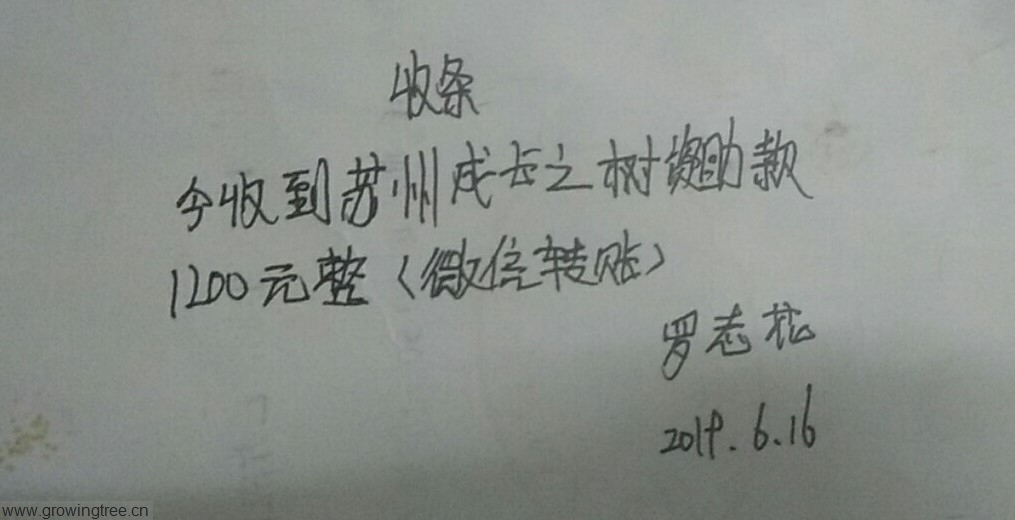 收条
今收到苏州成长之树资助款
1200元整（微信转账）
罗志松
2019.6.16
www.growingtree.cn